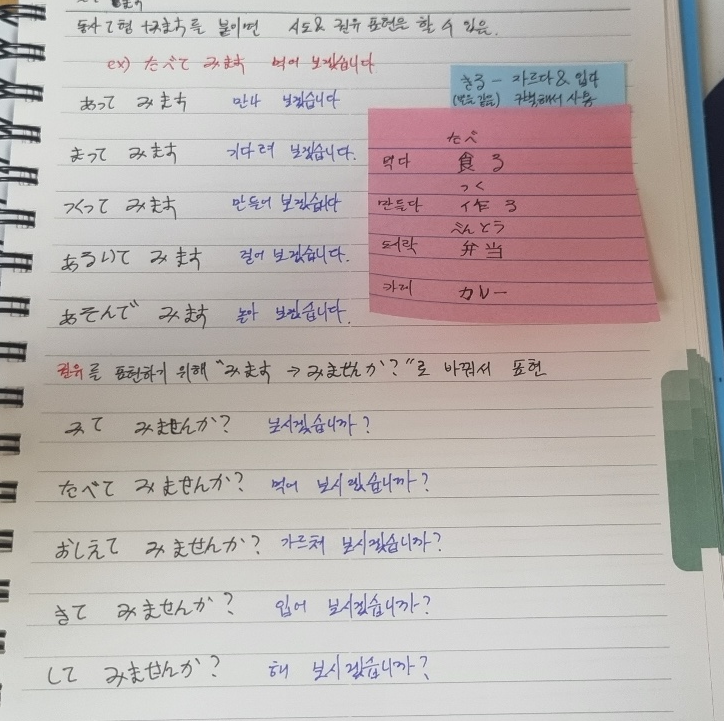 동사 て형 + みます를 붙이면 시도& 권유 표현을 할 수 있음.
ex) たべて みます 먹어 보겠습니다
あって みます 만나 보겠습니다
まって みます 기다려 보겠습니다.
つくって みます 만들어 보겠습니다
あるいて みます 걸어 보겠습니다.
あそんで みます 놀아 보겠습니다.
きる - 자르다& 입다
(발음 같음) 구별해서 사용
たべ
먹다 食る
つく
만들다 作る
べんとう
도시락 弁当
카레 カレー
권유를 표현하기 위해 "みます → みませんか?"로 바꿔서 표현
みて みませんか? 보시겠습니까?
たべて みませんか? 먹어 보시겠습니까?
おしえて みませんか? 가르쳐 보시겠습니까?
きて みませんか? 입어 보시겠습니까?
して みませんか? 해 보시겠습니까?